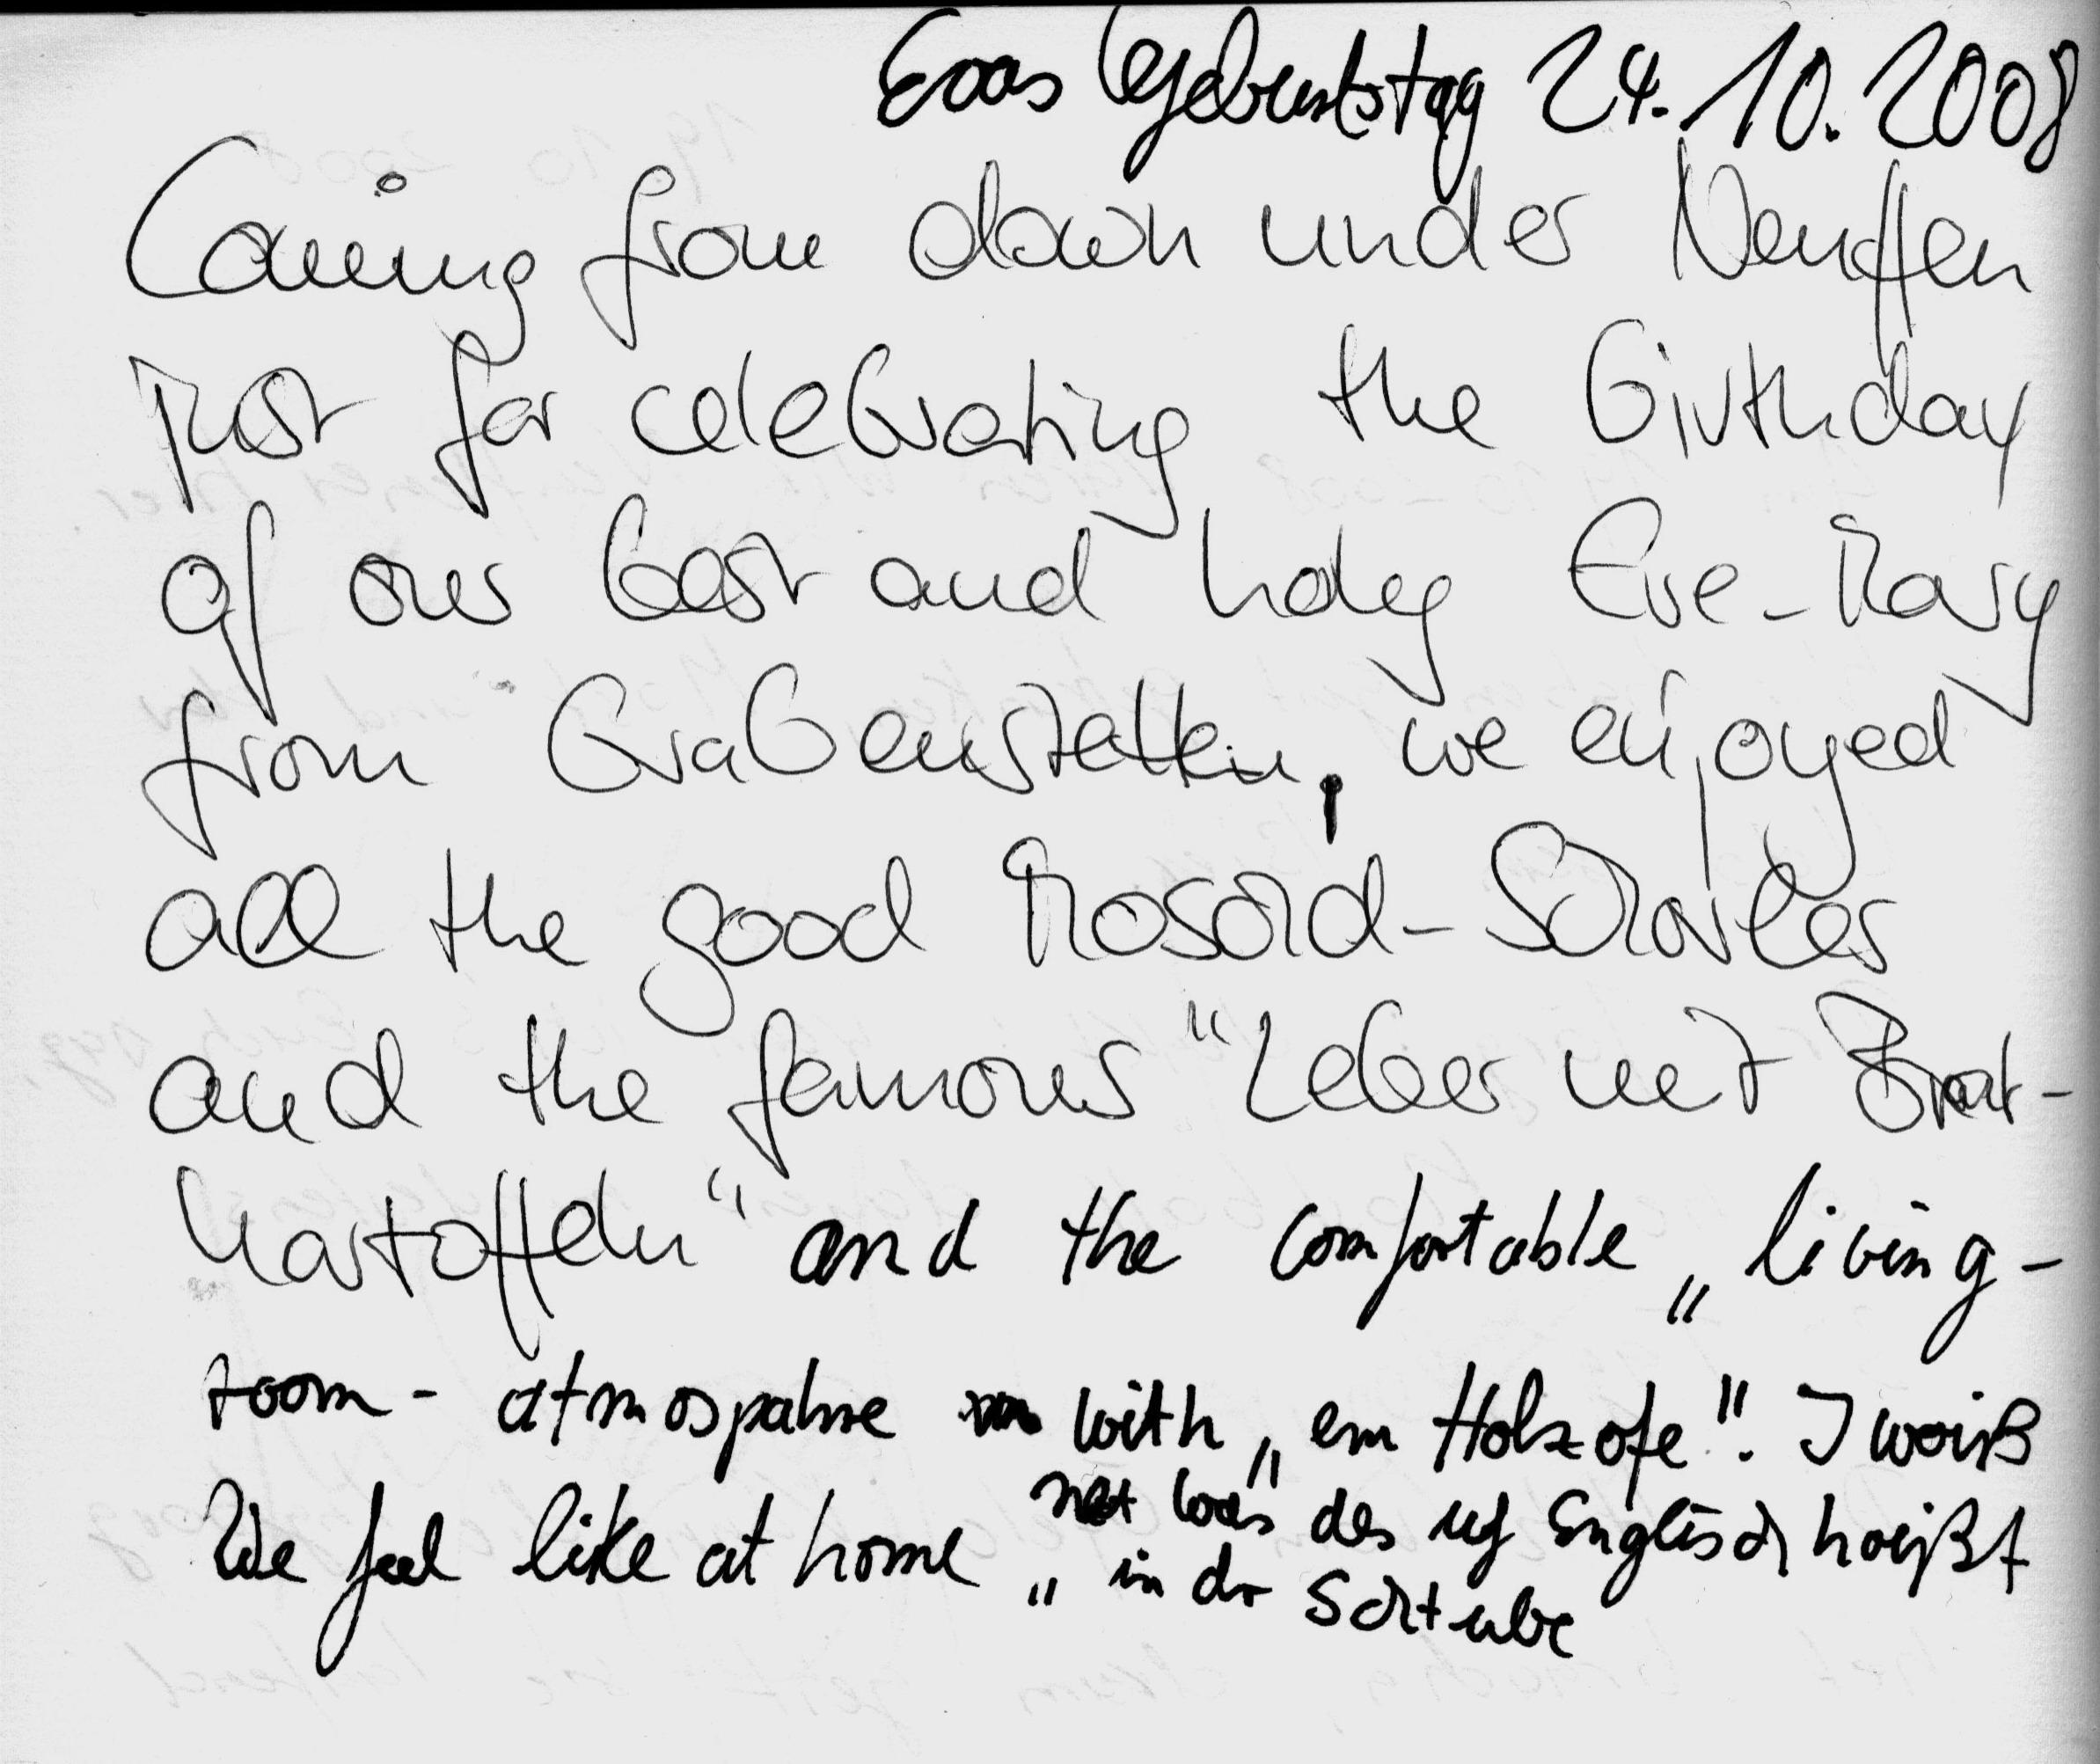 Evas Geburtstag 24.10.2008
Coming from down under Neuffen
just for celebrating the birthday
of our best and holy Eve-Mary
from Grabenstetten, we enjoyed
all the good Moschd-Schorler
and the famous "Leber mit Brat-
kartoffeln" and the comfortable „living-
room-atmospahre with „em Holzofe". I woiß
net was des uf Englisch hoißt
We feel like at home „in dr Schtube